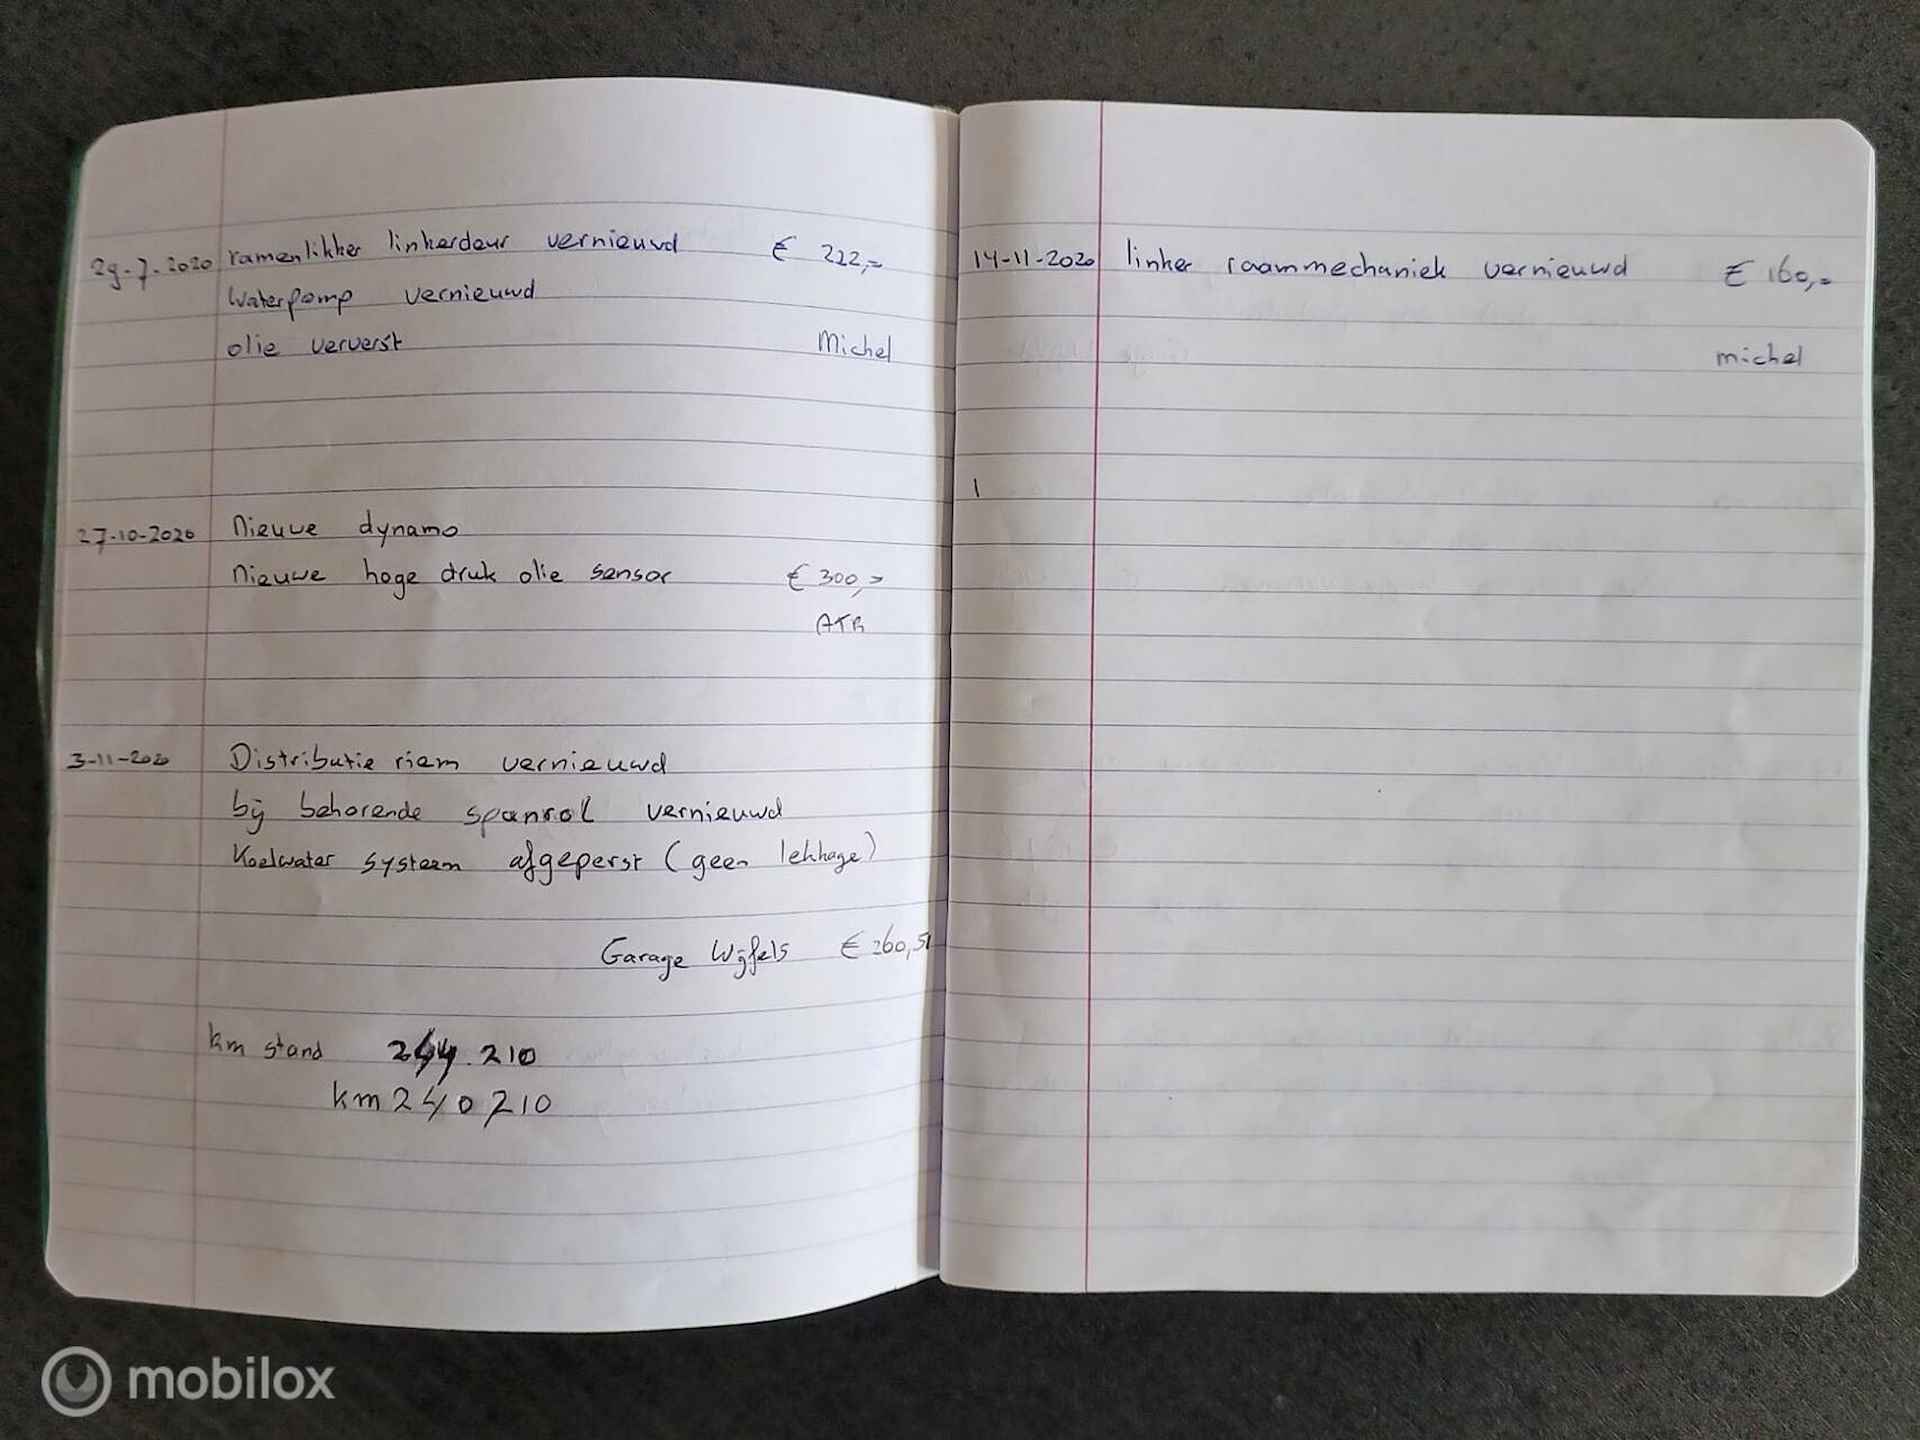 29-7-2020 ramenlikker linkerdeur vernieuwd € 222,=
Waterpomp vernieuwd
olie ververst Michel
27-10-2020 Nieuwe dynamo
Nieuwe hoge druk olie sensor € 300,=
ATR
3-11-2020 Distributie riem vernieuwd
bij behorende spanrol vernieuwd
Koelwater systeem afgeperst (geen lekkage)
Garage Wijfels € 260,51
km stand 244.210
km 240 210
14-11-2020 linker raammechaniek vernieuwd € 160,=
michel
mobilox